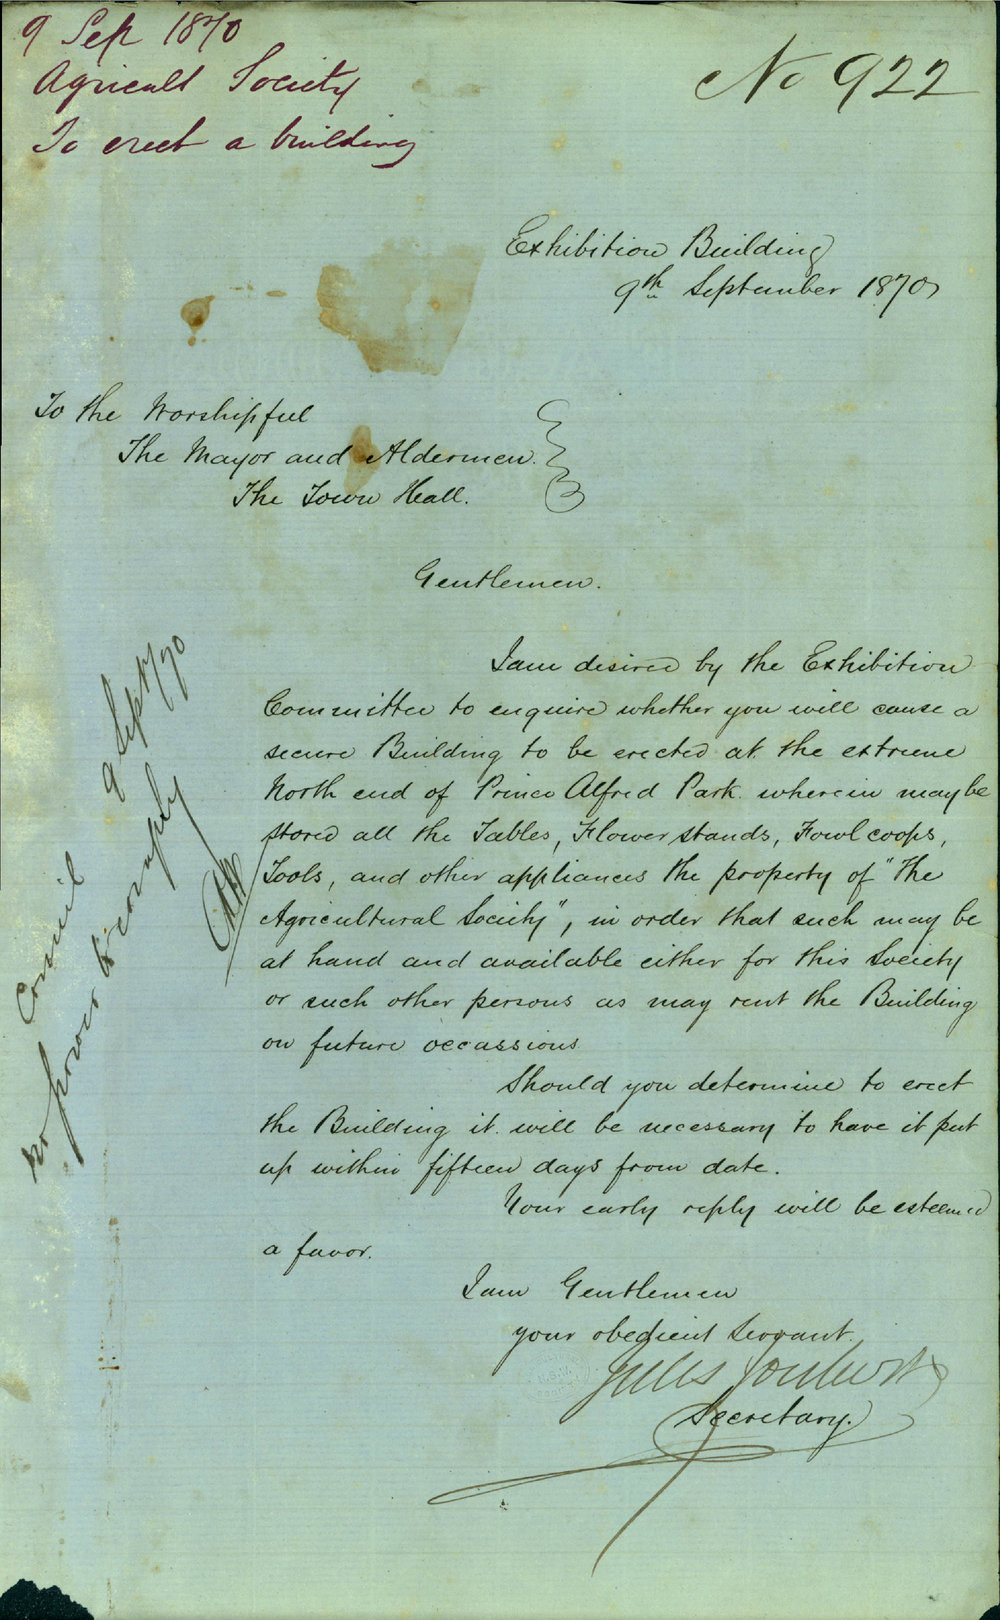 9 Sep 1870
Agricult Society
To erect a building
No 922
Exhibition Building
9th September 1870
To the Worshipful
The Mayor and Aldermen.
The Town Hall.
Gentlemen.
I am desired by the Exhibition
Committee to enquire whether you will cause a
secure Building to be erected at the extreme
North end of Prince Alfred Park wherein may be
stored all the Tables, Flower stands, Fowl coops,
Tools, and other appliances the property of "The
Agricultural Society", in order that such may be
at hand and available either for this Society
or such other persons as may rent the Building
on future occassions
Should you determine to erect
the Building it will be necessary to have it put
up within fifteen days from date.
Your early reply will be esteemed
a favor.
I am Gentlemen
your obedient Servant.
Jules Joubert
Secretary.
Council 9 Sept/70
no power to comply